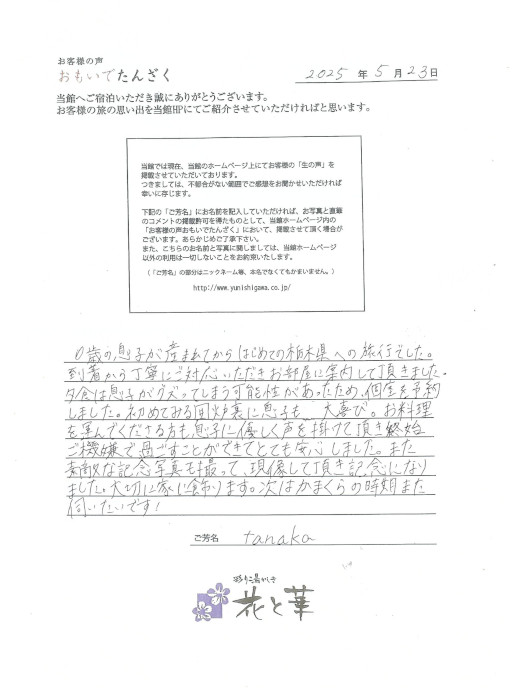 お客様の声
おもいでたんざく
2025 年 5 月 23日
当館へご宿泊いただき誠にありがとうございます。
お客様の旅の思い出を当館HPにてご紹介させていただければと思います。
当館では現在、当館のホームページ上にてお客様の「生の声」を
掲載させていただいております。
つきましては、不都合がない範囲でご感想をお聞かせいただければ
幸いに存じます。
下記の「ご芳名」にお名前を記入していただければ、お写真と直筆
のコメントの掲載許可を得たものとして、当館ホームページ内の
「お客様の声おもいでたんざく」において、掲載させて頂く場合が
ございます。あらかじめご了承下さい。
また、こちらのお名前と写真に関しましては、当館ホームページ
以外の利用は一切しないことをお約束いたします。
（「ご芳名」の部分はニックネーム等、本名でなくてもかまいません。）
http://www.yunishigawa.co.jp/
0歳の息子が産まれてからはじめての栃木県への旅行でした。
到着から丁寧にご対応いただきお部屋に案内して頂きました。
夕食は息子がグズってしまう可能性があったため、個室を予約
しました。初めてみる囲炉裏に息子も、大喜び。お料理
を運んでくださる方も息子に優しく声を掛けて頂き終始
ご機嫌で過ごすことができてとても安心しました。また
素敵な記念写真も撮って、現像して頂き記念になり
ました。大切に家に飾ります。次はかまくらの時期また
伺いたいです！
ご芳名 tanaka
彩り湯かしき
花と華